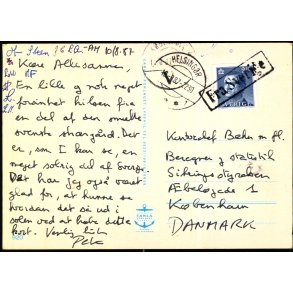 10/8.87
Kære Allesammen,
En lille og nok noget
forsinket hilsen fra
en del af den smalle
svenske skærgård. Der
er, som I kan se, en
meget solrig del af Sverige.
Det har jeg også været
glad for, at kunne se
hvordan det så ud i
solen ved at købe dette
kort. Venlig hilsen
HELSINGØR
Fra Sverige
SVERIGE
Kontorchef Bøhm m.fl.
Beregning og statistik
Sikringsstyrelsen
Æbeløgade 1
København
DANMARK